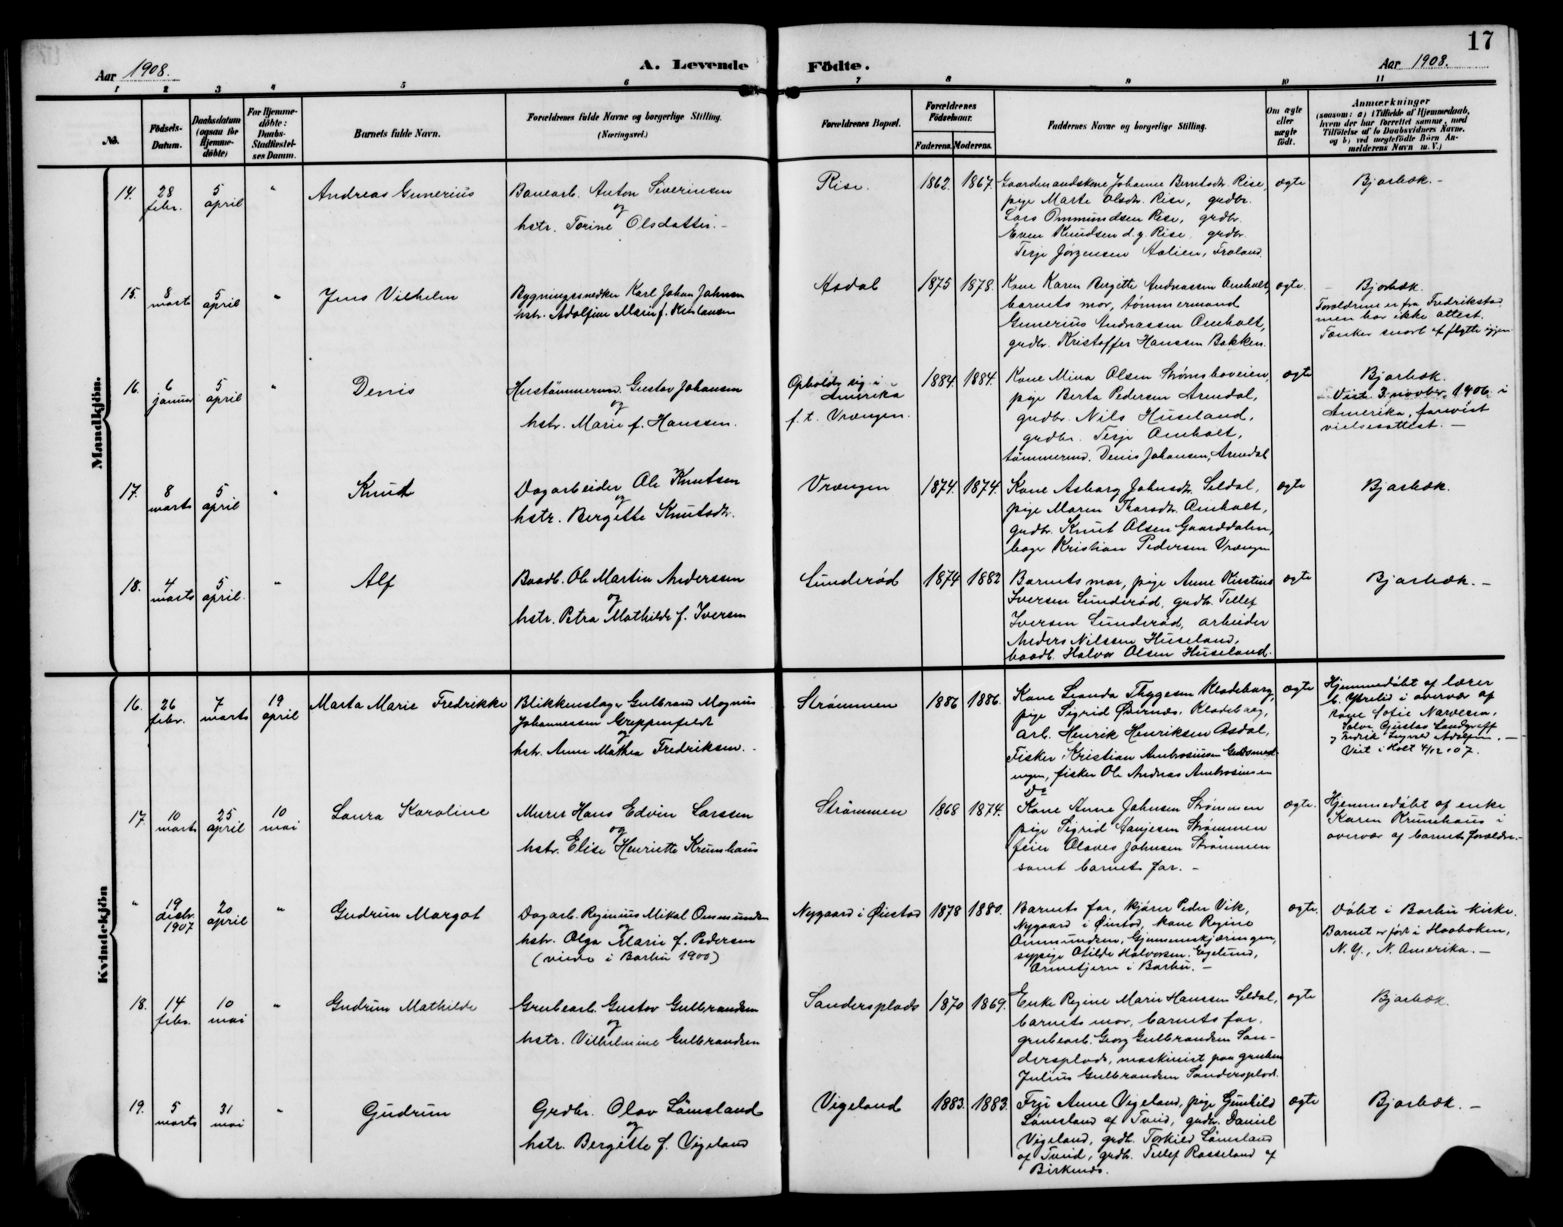 17
Aar 1908.
A. Levende Födte.
Aar 1908.
1 2 3 4 5 6 7 8 9 10 11
No.
Födsels-
Datum.
Daabsdatum
(ogsaa for
Hjemme-
döbte)
For Hjemme-
döbte:
Daabs-
Stadfæstel-
ses Datum.
Barnets fulde Navn.
Forældrenes fulde Navne og borgerlige Stilling.
(Næringsvei.)
Forældrenes Bopæl.
Forældrenes
Födselsaar.
Faderens. Moderens.
Faddernes Navne og borgerlige Stilling.
Om ægte
eller
uægte
födt.
Anmærkninger
(saasom: a) i Tilfælde af Hjemmedaab,
hvem der har forrettet samme, med
Tilföielse af to Daabsvidners Navne,
og b) ved uægtefödte Börn An-
melderens Navn m. V.)
Mandkjön.
14. 28 febr. 5 april " Andreas Gunerius
Banearb. Anton Severinsen
og
hstr. Torine Olsdatter.
Rise. 1862. 1867.
Gaardmandskone Johanne Berntsdr. Rise,
pige Marte Olsdr. Rise, grdbr.
Lars Ommundsen Rise, grdbr.
Even Knudsen d.y. Rise, grdbr.
Terje Jørgensen Aalien, Froland.
ægte
Bjorbæk. -
15. 8 marts 5 april " Jens Vilhelm
Bygningssnedker Karl Johan Johnsen
hstr. Adolfine Marie f.
Asdal 1875 1878.
Kone Karen Birgitte Andreassen Amholt,
barnets mor, tømmermand
Gunerius Andreassen Amholt,
grdbr. Kristoffer Hanssen Bakken.
ægte.
Bjorbæk.
Forældrene er fra Fredrikstad
men har ikke attest.
Tænker snart at flytte igjen
16. 6 januar 5 april " Denis
Hustømmermd. Gustav Johansen
og
hstr. Marie f. Hanssen.
Opholder sig i
Amerika
f. t. Vrængen.
1884. 1884.
Kone Mina Olsen Strømsboveien,
pige Berta Pedersen Arendal,
grdbr. Nils Huseland,
grdbr. Terje Amholt,
tømmermd. Denis Johansen, Arendal
ægte
Bjorbæk.
Viet 3 novbr. 1906 i
Amerika, forevist
vielsesattest. -
17. 8 marts 5 april " Knut
Dagarbeider Ole Knutsen
og
hstr. Bergitte Knutsdr.
Vrængen 1874. 1874.
Kone Asborg Johnsdr. Seldal,
pige Maren Amholt,
grdbr. Knut Olsen Gaarddalen,
bager Kristian Pedersen Vrængen
ægte
Bjorbæk.
18. 4 marts 5 april. " Alf
Baadb. Ole Martin Anderssen
og
hstr. Petra Mathilde f. Iversen
Lunderød 1874 1882
Barnets mor, pige Anne Kirstine
Iversen Lunderød, grdbr. Tellef
Iversen Lunderød, arbeider
Anders Nilssen Huseland,
baadb. Halvor Olsen Huseland.
ægte
Bjorbæk. -
Kvindekjön
16. 26 febr. 7 marts 19 april Marta Marie Fredrikke
Blikkenslager Gulbrand Magnus
Johannessen Greppenfeldt
og
hstr. Anne Mathea Fredriksen.
Strømmen 1886 1886.
Kone Leonda Thygesen Klodeborg,
pige Sigrid Øvernes, Klodeborg,
arb. Henrik Henriksen Asdal,
Fisker Kristian Ambrosiusen
fisker Ole Andreas Ambrosiussen
Do
ægte
Hjemmedøbt af lærer
i overvær af
kone Sofie
og Fredrik
Viet i Holt 4/12 07.
17. 10 marts 25 april 10 mai Laura Karoline
Murer Hans Edvin Larssen
og
hstr. Elise Henriette Krumshaus
Strømmen 1868 1874.
Kone Anne Johnsen Strømmen
pige Sigrid Strømmen
feier Olaves Johnsen Strømmen
samt barnets far. -
ægte.
Hjemmedøbt af enke
Karen i
overvær af barnets forældre. -
" 19 decbr. 1907 20 april " Gudrun Margot
Dagarb. Reginius Mikal Ommundsen
og
hstr. Olga Marie f. Pedersen
(viede i Barbu 1900)
Nygaard i Øiestad 1878 1880.
Barnets far, Peder Vik,
Nygaard i Øiestad, kone Regine
Ommundsen, Gjennemskjæringen,
sypige Otilde Halvorsen,
i Barbu. -
ægte.
Døbt i Barbu kirke.
Barnet er født i Hooboken,
N. Y., N. Amerika. -
18. 14 febr. 10 mai " Gudrun Mathilde
Grubearb. Gustav Gulbrandsen
og
hstr. Vilhelmine Gulbrandsen
Sandersplads 1870 1869.
Enke Regine Marie Hanssen Seldal,
barnets mor, barnets far.
grubearb. Georg Gulbrandsen San-
dersplads, maskinist paa gruben
Julius Gulbrandsen Sandersplads.
ægte
Bjorbæk.
19. 5 marts 31 mai " Gudrun
Grdbr. Olav Lømsland
og
hstr. Bergitte f. Vigeland
Vigeland 1883. 1883.
Frøi Anne Vigeland, pige Gunhild
Lømsland af Tveid, grdbr. Daniel
Vigeland, grdb. Torkild Lømsland
af Tveid, grdb. Tellef Rosseland af
Birkenes.
ægte
Bjorbæk. -